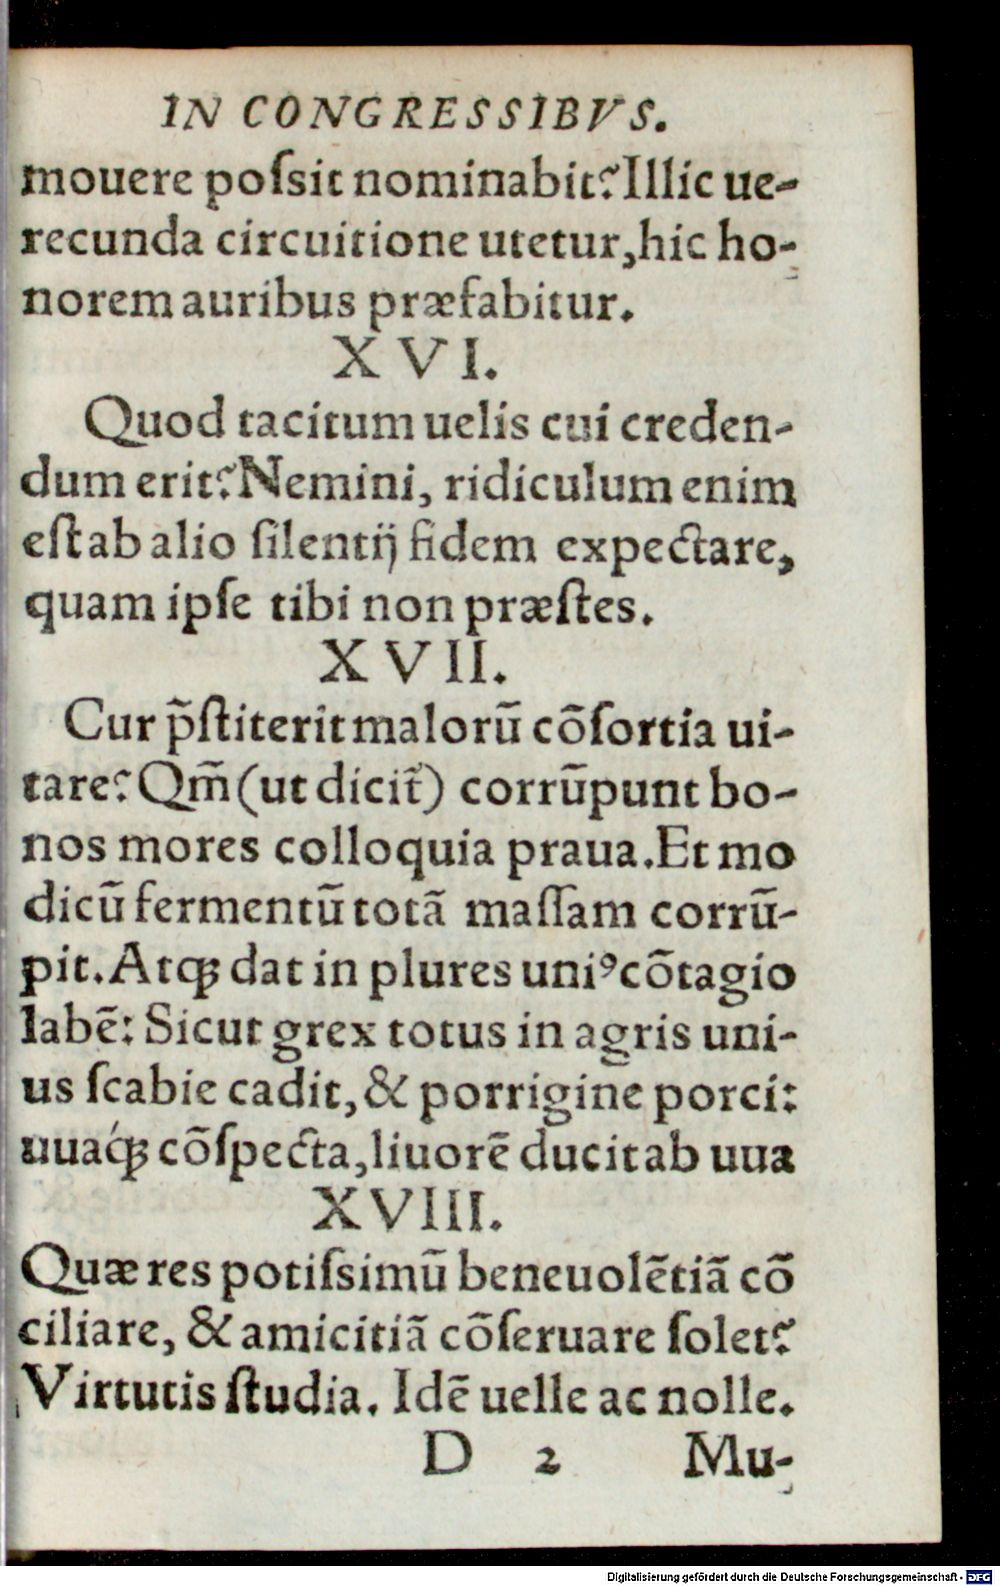 IN CONGRESSIBVS.
mouere poſsit nominabit? Illic ue-
recunda circuitione utetur, hic ho-
norem auribus præfabitur.
XVI.
Quod tacitum uelis cui creden-
dum erit? Nemini, ridiculum enim
eſt ab alio ſilentij fidem expectare,
quam ipſe tibi non præſtes.
XVII.
Cur p̃ſtiterit malorũ cõſortia ui-
tare? Qm̃ (ut dicit̃) corrũpunt bo-
nos mores colloquia praua. Et mo
dicũ fermentũ totã maſſam corrũ-
pit. Atq; dat in plures uniꝰ cõtagio
labẽ: Sicut grex totus in agris uni-
us ſcabie cadit, & porrigine porci:
uuáq; cõſpecta, liuorẽ ducit ab uua
XVIII.
Quæ res potiſsimũ beneuolẽtiã cõ
ciliare, & amicitiã cõſeruare ſolet?
Virtutis ſtudia. Idẽ uelle ac nolle.
D 2 Mu-
Digitalisierung gefördert durch die Deutsche Forschungsgemeinschaft - DFG